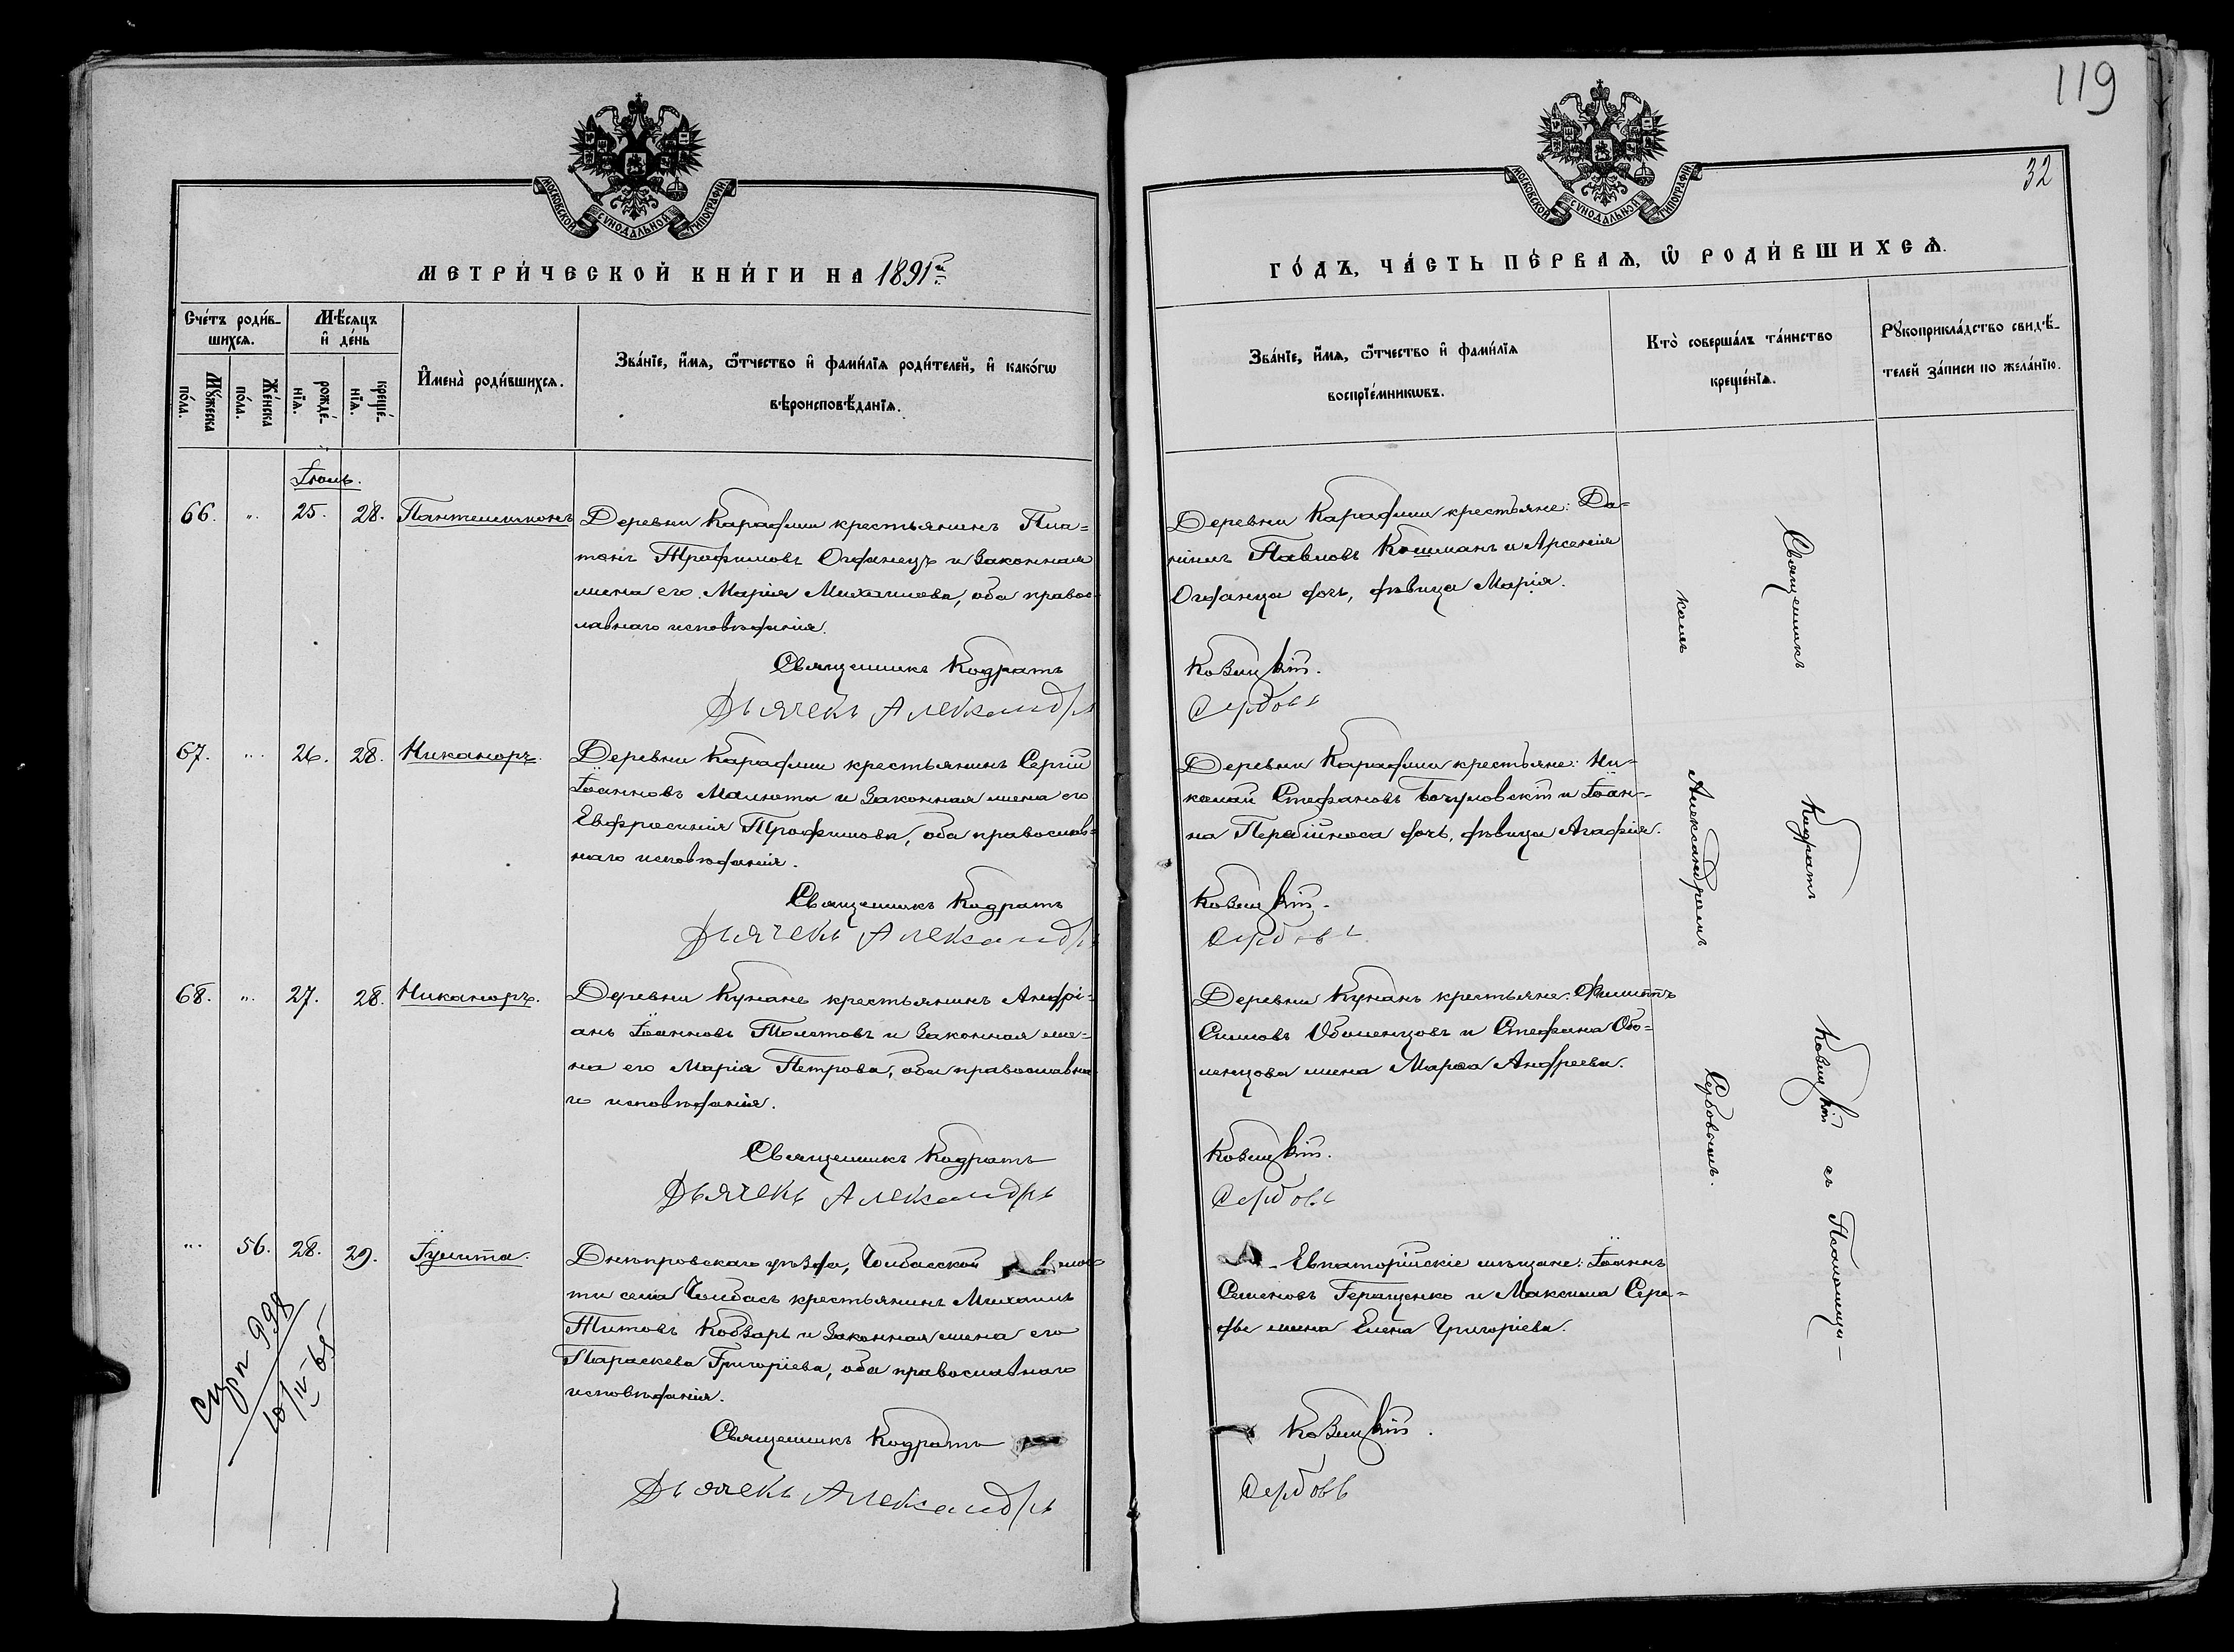 119
32
МОСКОВСКОЙ СѴНОДАЛЬНОЙ ТИПОГРАФІИ
МОСКОВСКОЙ СѴНОДАЛЬНОЙ ТИПОГРАФІИ
МЕТРИ́ЧЕСКОЙ КНИ́ГИ НА 1891й
ГО́ДЪ, ЧА́СТЬ ПЕ́РВАѦ, Ѡ РОДИ́ВШИХСѦ.
Сче́тъ роди́в-
шихсѧ.
Мꙋ́жеска
по́ла.
Же́нска
по́ла.
Мѣ́сѧцъ
и҆ де́нь
рожде́-
нїѧ.
креще́-
нїѧ.
И҆мена̀ роди́вшихсѧ.
Зва́нїе, и҆́мѧ, ѻ҆́тчество и҆ фами́лїѧ роди́телей, и҆ како́гѡ
вѣроисповѣ́данїѧ.
Зва́нїе, и҆́мѧ, ѻ҆́тчество и҆ фами́лїѧ
воспрїе́мникѡвъ.
Кто̀ соверша́лъ та́инство
креще́нїѧ.
Рꙋкоприкла́дство свидѣ́-
телей за́писи по жела́нїю.
Іюль.
66. „ 25. 28. Пантелеимонъ
Деревни Карафли крестьянинъ Пла-
тонъ Трофимовъ Огданецъ и законная
жена его Марія Михаилова, оба правос-
лавнаго исповѣданія.
Священникъ Кодратъ
Дьячекъ Александръ
Деревни Карафли крестьяне: Да-
ніилъ Павловъ Кошманъ и Арсенія
Огданца дочь, дѣвица Марія.
Ковницкій.
Сербовъ
67. „ 26. 28. Никаноръ.
Деревни Карафли крестьянинъ Сергій
Іоанновъ Малюта и законная жена его
Евфросинія Трофимова, оба православ-
наго исповѣданія.
Священникъ Кодратъ
Дьячекъ Александръ
Деревни Карафли крестьяне: Ни-
колай Стефановъ и Іоан-
на Перебійноса дочь, дѣвица Агафія.
Сербовъ
68. „ 27. 28. Никаноръ.
Деревни Кунане крестьянинъ Андрі-
анъ Іоанновъ Толстовъ и законная же-
на его Марія Петрова, оба православна-
го исповѣданія.
Священникъ Кодратъ
Дьячекъ Александръ
Деревни Кунанъ крестьяне: Филиппъ
Оболенцовъ и Стефана Обо-
ленцова жена Марѳа Андреева.
Сербовъ
„ 56. 28. 29. Іулитта.
Днѣпровскаго уѣзда, Чолбасской волос-
ти села Чолбасъ крестьянинъ Михаилъ
Титовъ Кобзарь и законная жена его
Параскева Григоріева, оба православнаго
исповѣданія.
Священникъ Кодратъ
Дьячекъ Александръ
Евпаторійскіе мѣщане: Іоаннъ
Семеновъ Геращенко и Максима Сере-
ды жена Елена Григоріева.
Сербовъ
Священникъ Кодратъ съ Псаломщи-
комъ Александромъ Сербовымъ.
998
10/IV 65